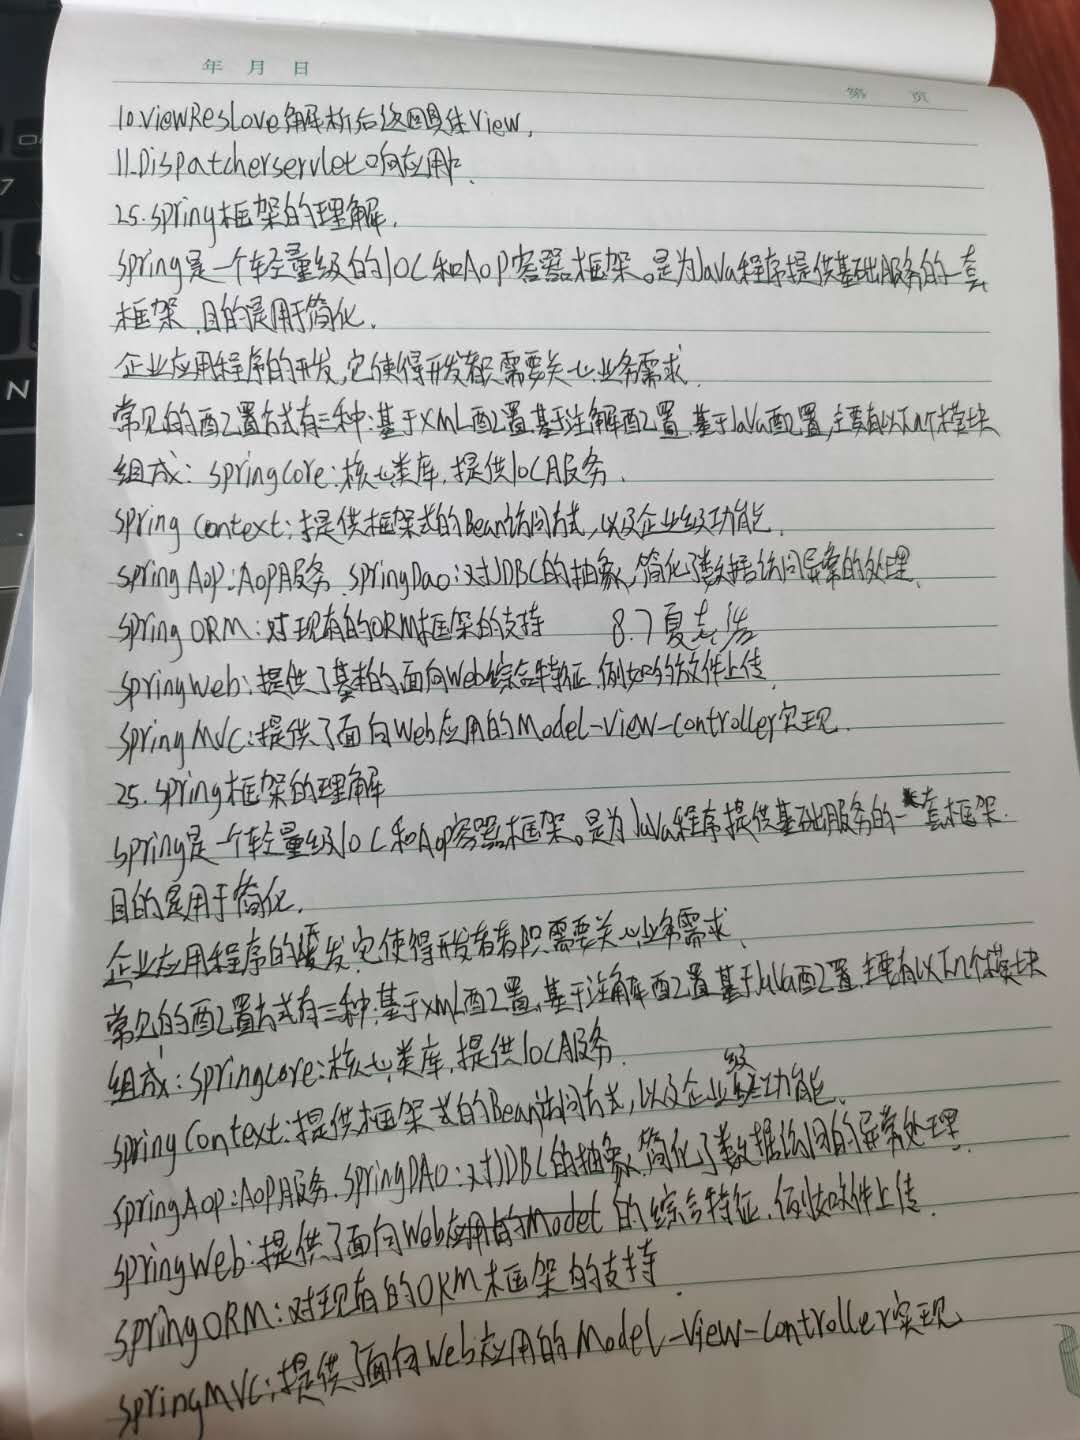 年 月 日
第 页
10.viewReslove解析后返回具体view,
11.Dispatcherservlet响应用户.
25.spring框架的理解.
spring是一个轻量级的IOC和AOP容器框架。是为Java程序提供基础服务的一套
框架,目的是用于简化.
企业应用程序的开发,它使得开发者只需要关心业务需求.
常见的配置方式有三种:基于XML配置.基于注解配置.基于Java配置,主要有以下几个模块
组成: springcore:核心类库,提供IOC服务.
spring context:提供框架式的Bean访问方式,以及企业级功能.
springAop:AOP服务.springDao:对JDBC的抽象,简化了数据访问异常的处理.
springORM:对现有的ORM框架的支持 8.7夏志浩
springWeb:提供了基本的面向Web综合特征,例如多文件上传.
springMVC:提供了面向Web应用的Model-View-controller实现.
25.spring框架的理解
spring是一个轻量级IOC和Aop容器框架。是为Java程序提供基础服务的一套框架.
目的是用于简化.
企业应用程序的发,它使得开发者者只需要关心业务需求.
常见的配置方式有三种:基于xml配置.基于注解配置.基于Java配置.主要有以下几个模块
组成:springcore:核心类库,提供IOC服务.
spring context:提供框架式的Bean访问方式,以及企业级功能.
springAop:AOP服务.springDAO:对JDBC的抽象,简化了数据访问的异常处理.
springWeb:提供了面向Web应用的Model的综合特征,例如文件上传.
springORM:对现有的ORM框架的支持.
springMVC:提供了面向Web应用的Model-View-controller实现